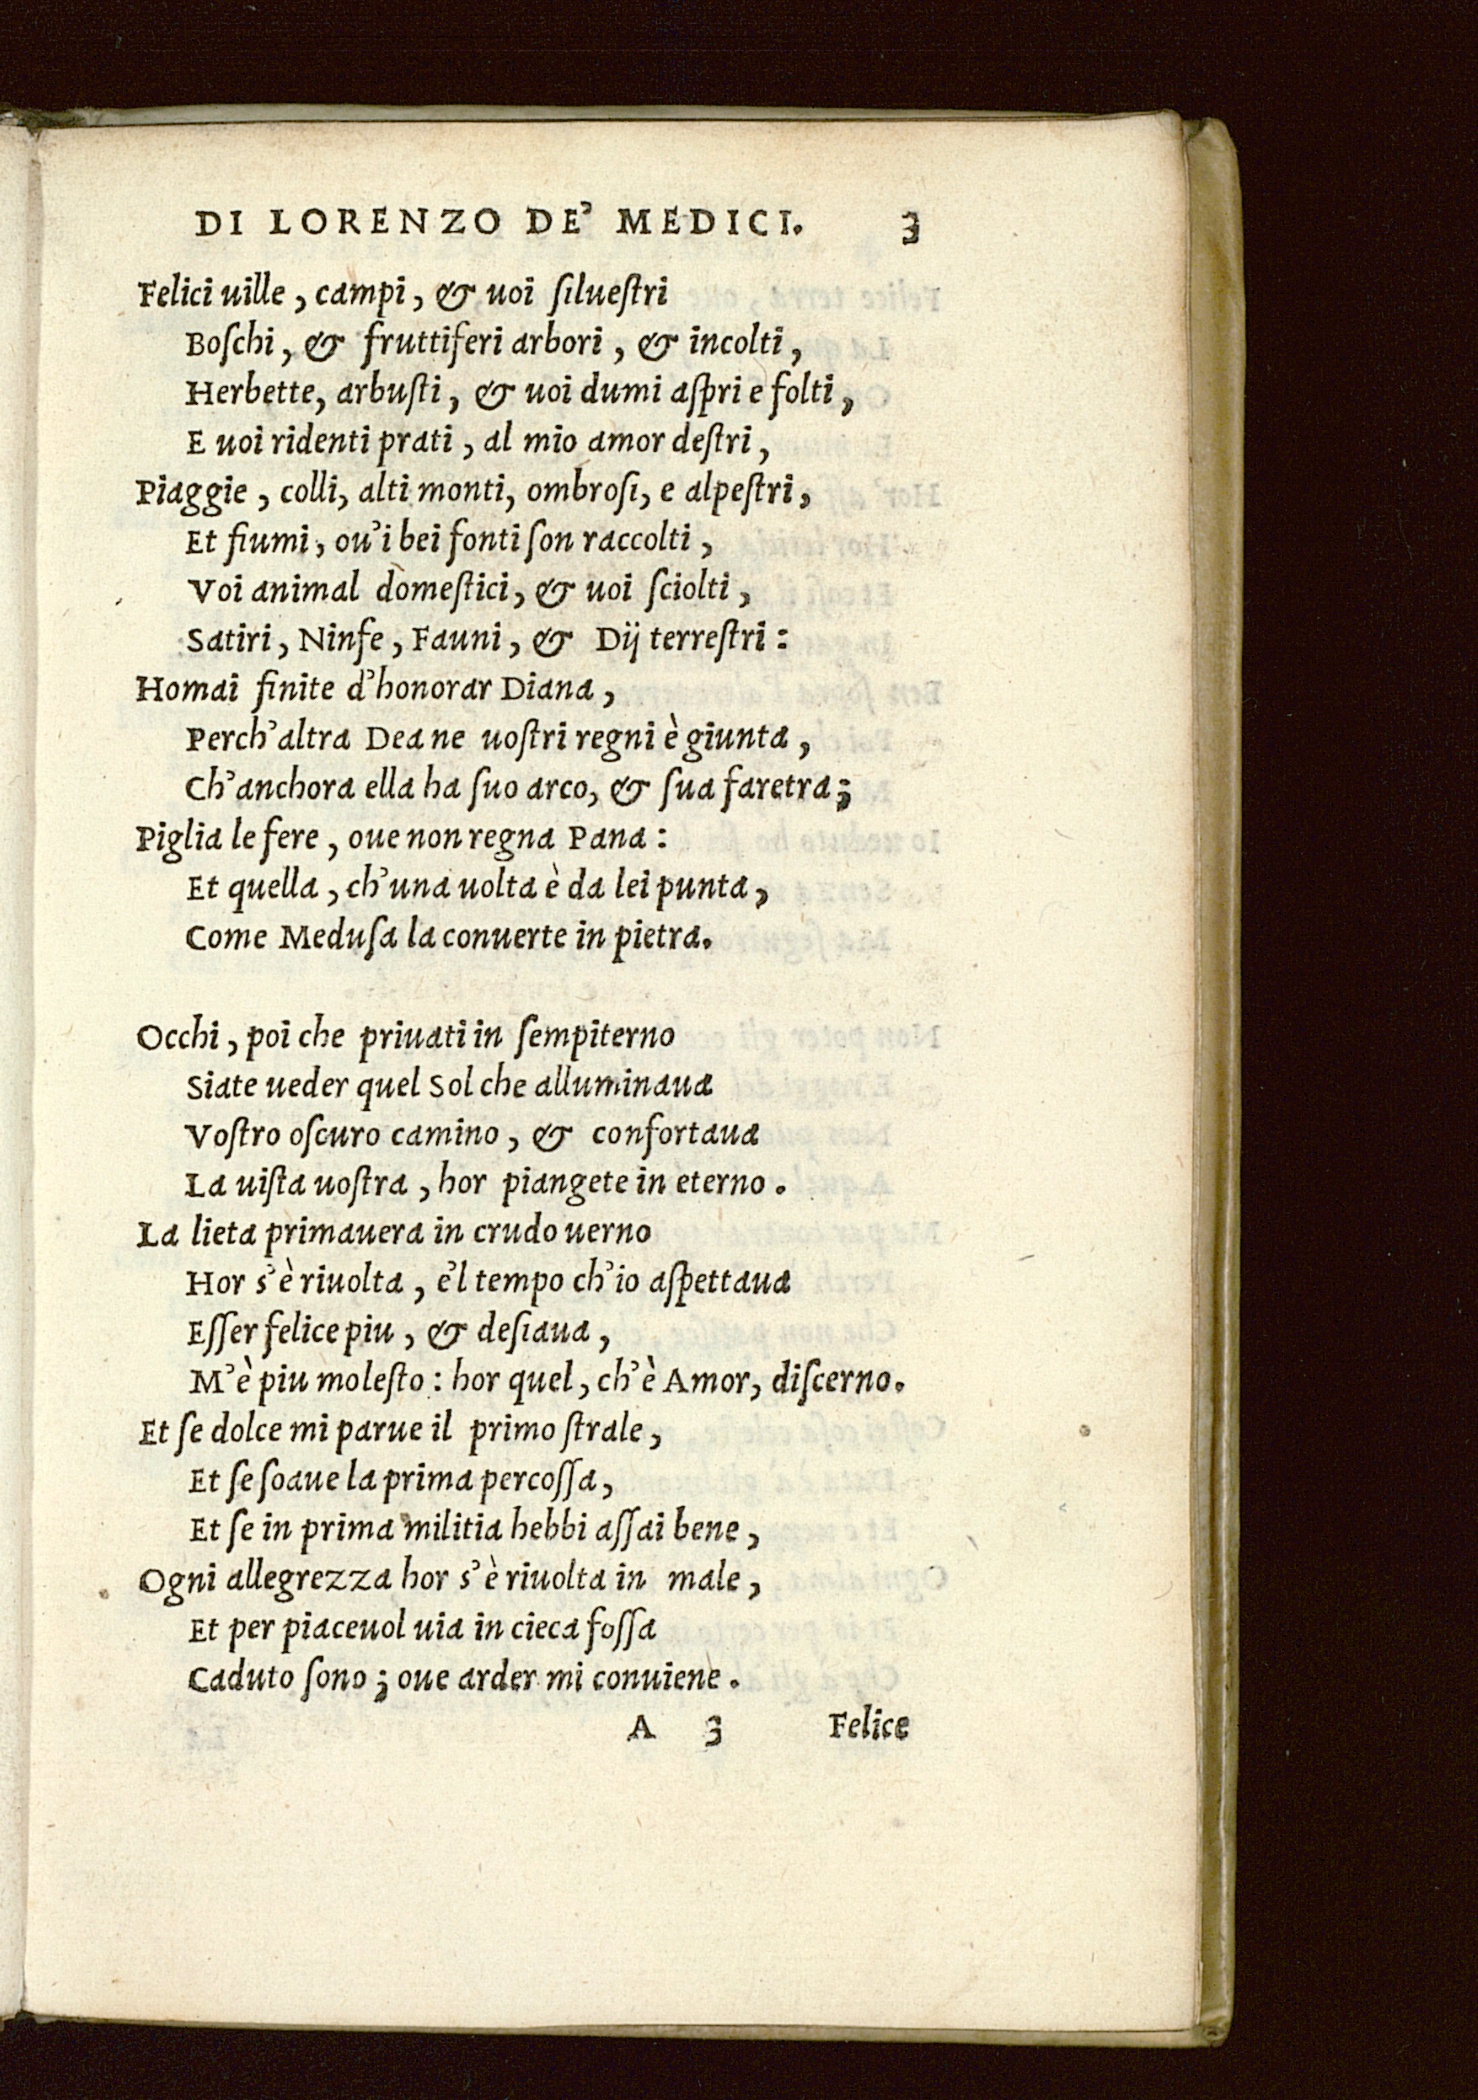 DI LORENZO DE' MEDICI. 3
Felici uille, campi, & uoi ſilueſtri
Boſchi, & fruttiferi arbori, & incolti,
Herbette, arbuſti, & uoi dumi aſpri e folti,
E uoi ridenti prati, al mio amor deſtri,
Piaggie, colli, alti monti, ombroſi, e alpeſtri,
Et fiumi, ou'i bei fonti ſon raccolti,
Voi animal domeſtici, & uoi ſciolti,
Satiri, Ninfe, Fauni, & Dij terreſtri:
Homai finite d'honorar Diana,
Perch'altra Dea ne uoſtri regni è giunta,
Ch'anchora ella ha ſuo arco, & ſua faretra;
Piglia le fere, oue non regna Pana:
Et quella, ch'una uolta è da lei punta,
Come Meduſa la conuerte in pietra.
Occhi, poi che priuati in ſempiterno
Siate ueder quel Sol che alluminaua
Voſtro oſcuro camino, & confortaua
La uiſta uoſtra, hor piangete in eterno.
La lieta primauera in crudo uerno
Hor s'è riuolta, e'l tempo ch'io aſpettaua
Eſſer felice piu, & deſiaua,
M'è piu moleſto: hor quel, ch'è Amor, diſcerno.
Et ſe dolce mi parue il primo ſtrale,
Et ſe ſoaue la prima percoſſa,
Et ſe in prima militia hebbi aſſai bene,
Ogni allegrezza hor s'è riuolta in male,
Et per piaceuol uia in cieca foſſa
Caduto ſono; oue arder mi conuiene.
A 3 Felice